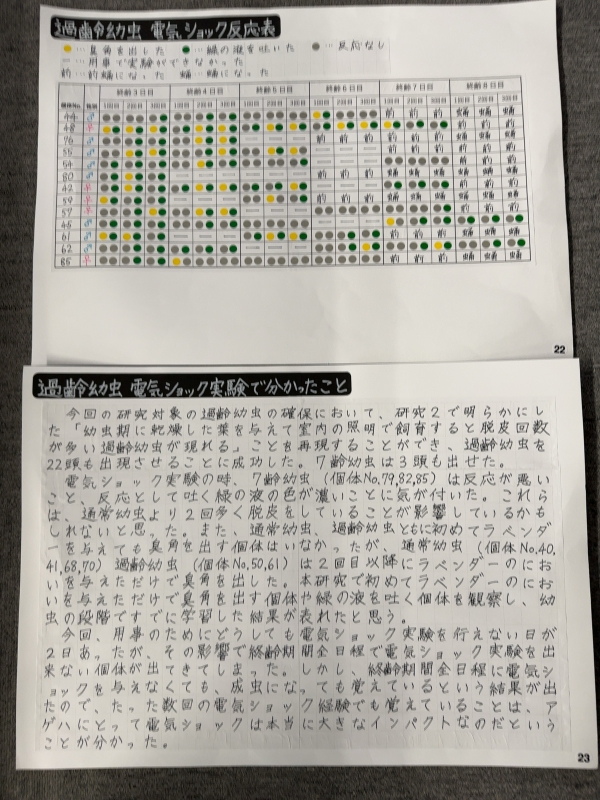 過齢幼虫 電気ショック反応表
●…臭角を出した ●…緑の液を吐いた ●…反応なし
―…用事で実験ができなかった
前…前蛹になった 蛹…蛹になった
終齢3日目 終齢4日目 終齢5日目 終齢6日目 終齢7日目 終齢8日目
個体No. 性別 1回目 2回目 3回目 1回目 2回目 3回目 1回目 2回目 3回目 1回目 2回目 3回目 1回目 2回目 3回目 1回目 2回目 3回目
44 ♂
48 ♀
76 ♂
55 ♂
54 ♂
80 ♂
42 ♀
59 ♀
57 ♀
45 ♂
61 ♂
62 ♂
85 ♀
22
過齢幼虫 電気ショック実験で分かったこと
今回の研究対象の過齢幼虫の確保において、研究2で明らかにし
た「幼虫期に乾燥した葉を与えて室内の照明で飼育すると脱皮回数
が多い過齢幼虫が現れる」ことを再現することができ、過齢幼虫を
22頭も出現させることに成功した。7齢幼虫は3頭も出せた。
電気ショック実験の時、7齢幼虫(個体No.79,82,85)は反応が悪い
こと、反応として吐く緑の液の色が濃いことに気が付いた。これら
は、通常幼虫より2回多く脱皮をしていることが影響しているかも
しれないと思った。また、通常幼虫、過齢幼虫ともに初めてラベンダ
ーを与えても臭角を出す個体はいなかったが、通常幼虫(個体No.40,
41,68,70)過齢幼虫(個体No.50,61)は2回目以降にラベンダーのにお
いを与えただけで臭角を出した。本研究で初めてラベンダーのにお
いを与えただけで臭角を出す個体や緑の液を吐く個体を観察し、幼
虫の段階ですでに学習した結果が表れたと思う。
今回、用事のためにどうしても電気ショック実験を行えない日が
2日あったが、その影響で終齢期間全日程で電気ショック実験を出
来ない個体が出てきてしまった。しかし、終齢期間全日程に電気シ
ョックを与えなくても、成虫になっても覚えているという結果が出
たので、たった数回の電気ショック経験でも覚えていることは、ア
ゲハにとって電気ショックは本当に大きなインパクトなのだという
ことが分かった。
23